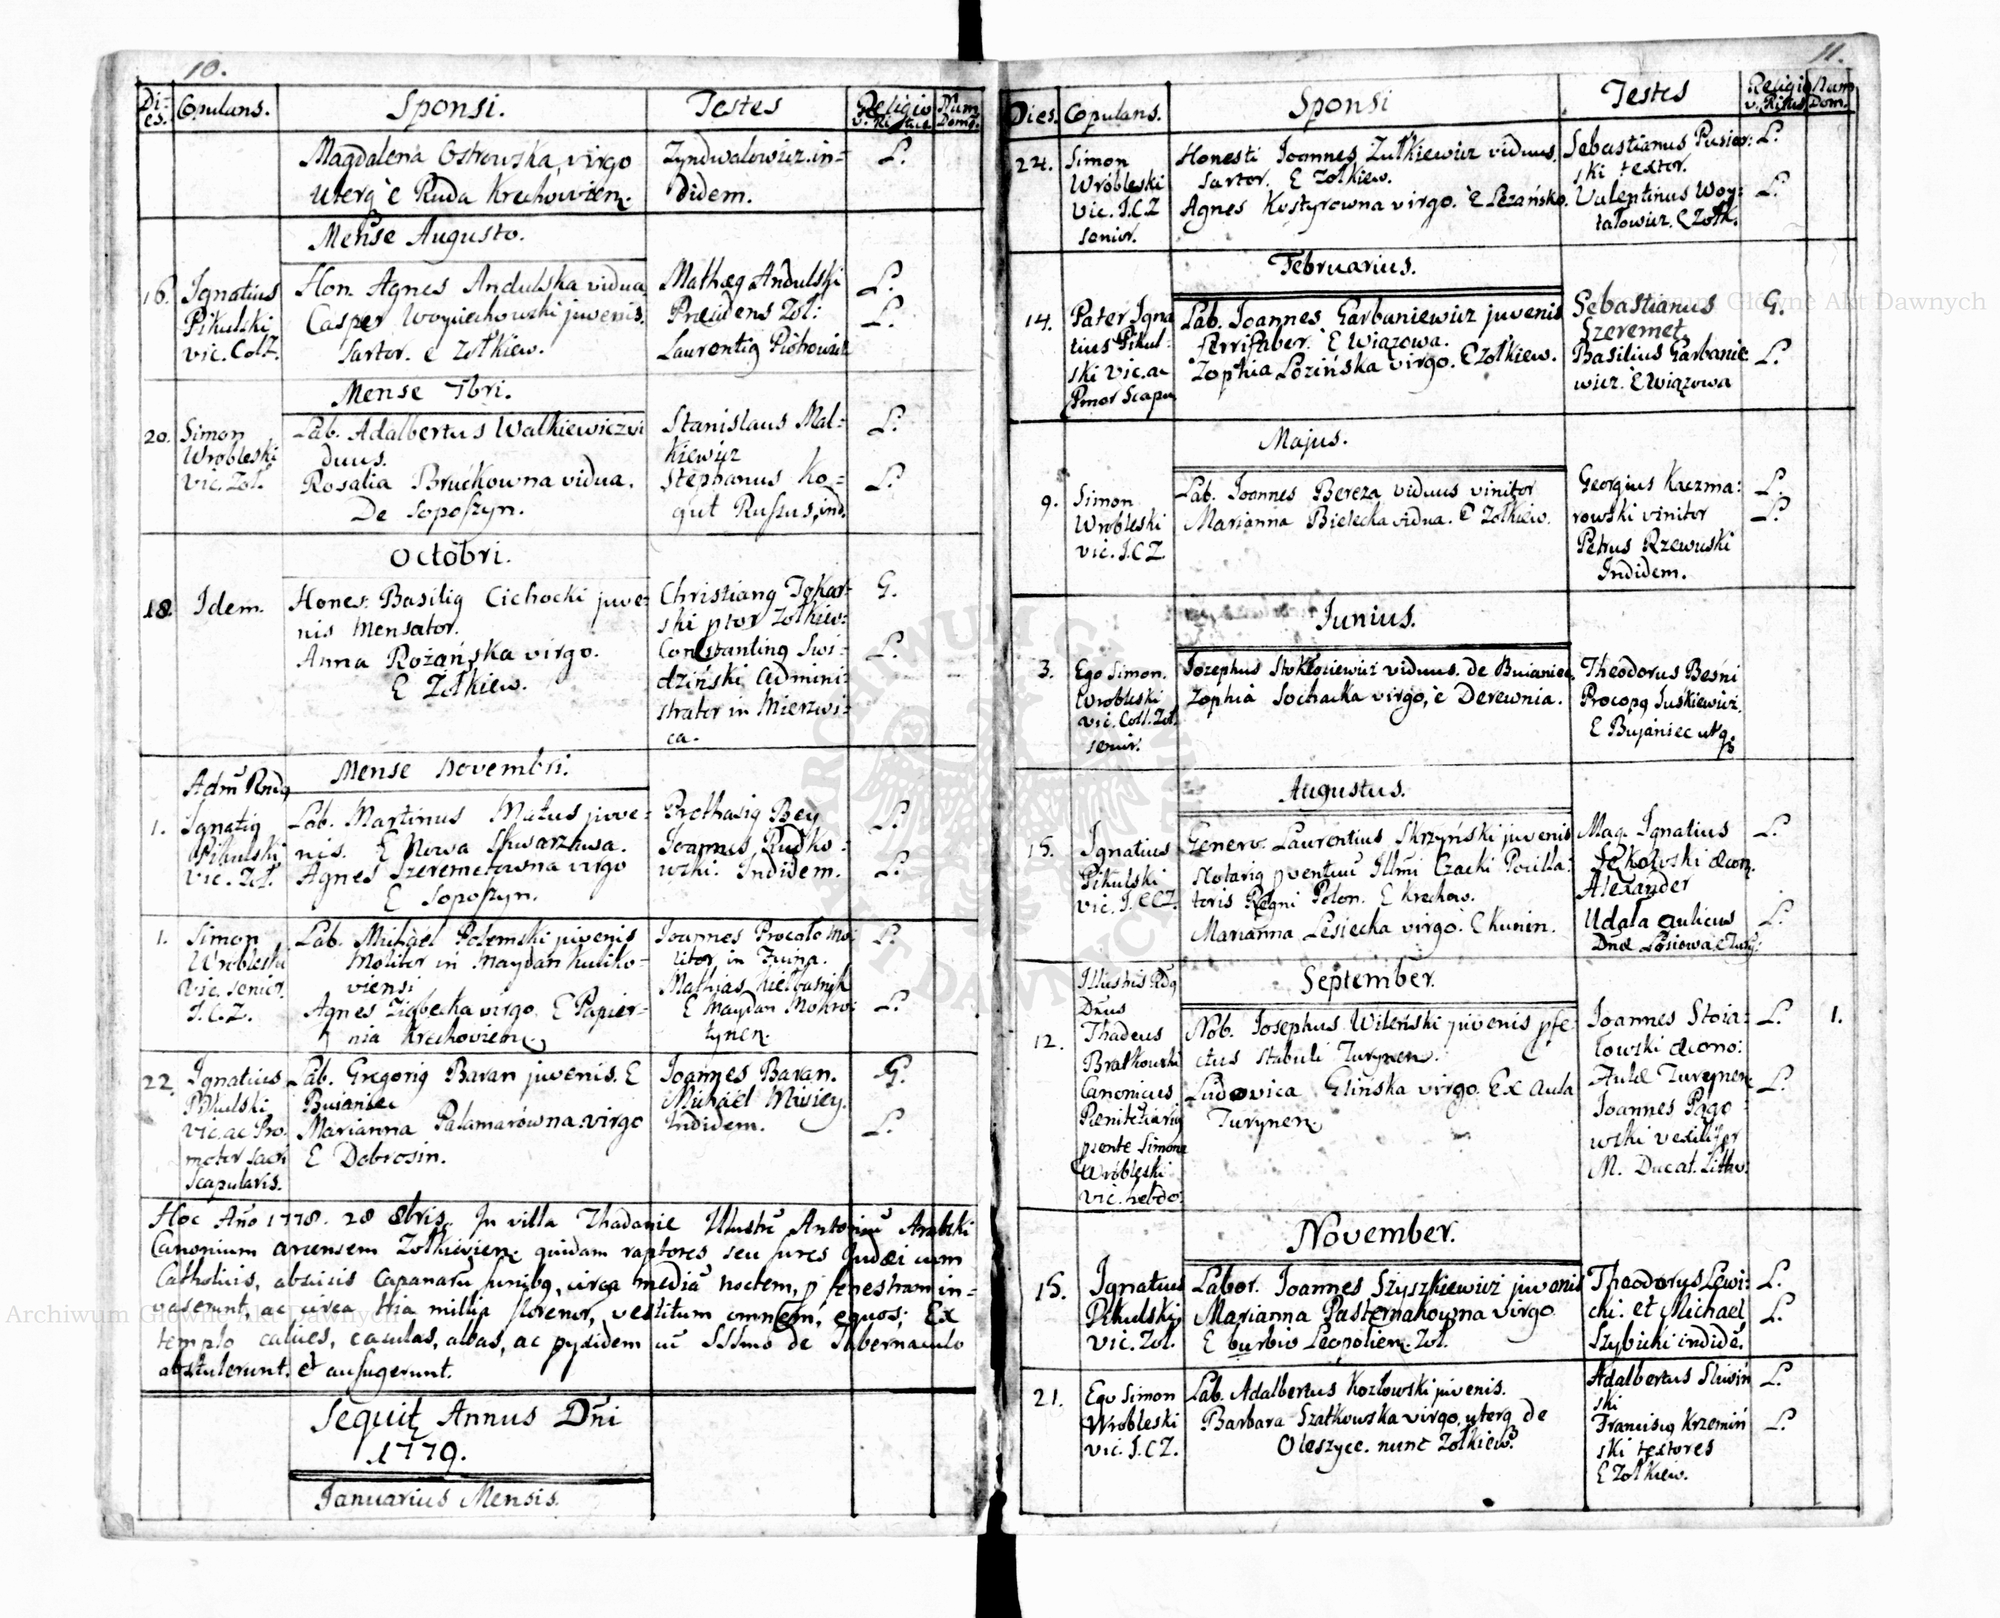 10.
Dies. Copulans. Sponsi. Testes Religio v. Ritus Num Domq.
Magdalena Ostrowska, virgo
uterq è Ruda Krechovien.
Zyndwalowicz in-
didem.
L.
Mense Augusto.
16.
Ignatius
Pikulski
vic. ColZ.
Hon. Agnes Andulska vidua
Casper Woyciechowski juvenis.
Sartor. e Zołkiew.
Mathæg Andulski
Præsidens Zol:
Laurentig Piotrowicz
L.
L.
Mense 7bri.
20.
Simon
Wrobleski
vic. Zoł.
Lab. Adalbertus Walkiewicz vi
duus.
Rosalia Bruckowna vidua.
De Soposzyn.
Stanislaus Mal-
kiewicz
Stephanus Ko-
gut Russus, ind.
L.
L.
Octobri.
18.
Idem.
Hones. Basilig Cichocki juve-
nis Mensator.
Anna Rożańska virgo.
E Zołkiew.
Christiang Tokar-
ski ptor Zołkiew:
Constanting Swi-
dziński Admini-
strator in Mierzwi-
ca.
G.
L.
Mense Novembri.
1.
Adm Rndg
Ignatig
Pikulski
vic. Zoł.
Lab. Martinus Matus juve-
nis. E Nowa Skwarzawa.
Agnes Szeremetowna virgo
E Soposzyn.
Prothasig Bey
Joannes Rudko-
wski. Indidem.
L.
L.
1.
Simon
Wrobleski
vic. senior.
I.C.Z.
Lab. Michael Polemski juvenis
Molitor in Maydan Kuliko-
viensi
Agnes Ziabecka virgo. E Papier-
nia Krechovien.
Joannes Procało Mo-
litor in Fuyna.
Mathias Kiełbasnik
E Maydan Mokro-
tynen.
L.
L.
22.
Ignatius
Pikulski
vic. ac Pro-
motor Sacri
Scapularis.
Lab. Gregorig Baran juvenis. E
Bujaniec
Marianna Palamarówna virgo
E Dobrosin.
Joannes Baran.
Michael Misiey.
Indidem.
G.
L.
Hoc Año 1778. 28 8bris. In villa Thadanie Illustrũ Antoniũ Arabski
Canonium arcensem Zołkievien. quidam raptores seu fures Judæi cum
Catholicis, abscicis capanarũ funibq, circa mediã noctem, p fenestram in-
vaserunt, ac circa tria millia florenor, vestitum omnem, equos; Ex
templo calices, casulas, albas, ac pyxidem cũ SSSmo de Tabernaculo
abstulerunt. et aufugerunt.
Sequit Annus Dñi
1779.
Januarius Mensis.
11.
Dies. Copulans. Sponsi Testes Religio v. Ritus Num Dom.
22.
Simon
Wrobleski
vic. I.C.Z
senior.
Honesti Joannes Zułkiewicz viduus.
Sartor. E Zołkiew.
Agnes Kostyrowna virgo. è Lezańsko.
Sebastianus Pusior:
ski textor.
Valentinus Woy:
tałowicz. E Zołk.
L.
L.
Februarius.
14.
Pater Igna
tius Pikul-
ski Vic. ac
Pmor Scapu
Lab. Joannes Garbaniewicz juvenis
ferrifaber. E Wiązowa.
Zophia Łozińska virgo. E Zołkiew.
Sebastianus
Szeremet
Basilius Garbanie
wicz. E Wiązowa
G.
L.
Majus.
9.
Simon
Wrobleski
vic. I.C.Z.
Lab. Joannes Bereza viduus vinitor
Marianna Bielecka vidua. E Zołkiew.
Georgius Kaczma:
rowski vinitor
Petrus Rzewuski
Indidem.
L.
L.
Junius.
3.
Ego Simon.
Wrobleski
vic. Coll. Zoł
senior.
Josephus Stokłosiewicz viduus. de Bujaniec.
Zophia Sochacka virgo, è Derewnia.
Theodorus Beśni
Procopg Juskiewicz.
E Bujaniec utq.
Augustus.
15.
Ignatius
Pikulski
vic. I.CCZ.
Generv. Laurentius Skrzyński juvenis
Notarig pventuũ Illmi Czacki Pocilla:
toris Regni Polon. E Krechow.
Marianna Lesiecka virgo. E Kunin.
Mag. Ignatius
Sękowski œcon.
Alexander
Udała aulicus
Dnæ Łosiowa E Tury:
L.
L.
September.
12.
Illustris Rdg
Dñus
Thadeus
Bratkowski
Canonicus
Pienitẽtiarig
psente Simone
Wrobleski
vic. hebdo.
Nob. Josephus Wileński juvenis pfe-
ctus stabuli Turynen.
Ludovica Glińska virgo. Ex Aula
Turynen.
Joannes Stoia-
łowski œcono:
Aulæ Turynen.
Joannes Pago-
wski vexilifer
M. Ducat. Lithv.
L.
L.
1.
November.
15.
Ignatius
Pikulski
vic. Zoł.
Labor. Joannes Szyszkiewicz juvenis
Marianna Pasternakowna virgo
E burbio Leopolien. Zoł.
Theodorus Lewi-
cki. et Michael
Szybicki indidẽ.
L.
L.
21.
Ego Simon
Wrobleski
vic. I.CZ.
Lab. Adalbertus Kozłowski juvenis.
Barbara Szałkowska virgo, uterq de
Oleszyce. nunc Zołkiew.
Adalbertus Sliwiń
ski
Franciscg Krzemiń
ski textores
E Zołkiew.
L.
L.
Archiwum Główne Akt Dawnych
Archiwum Główne Akt Dawnych
ARCHIWUM GŁÓWNE AKT DAWNYCH